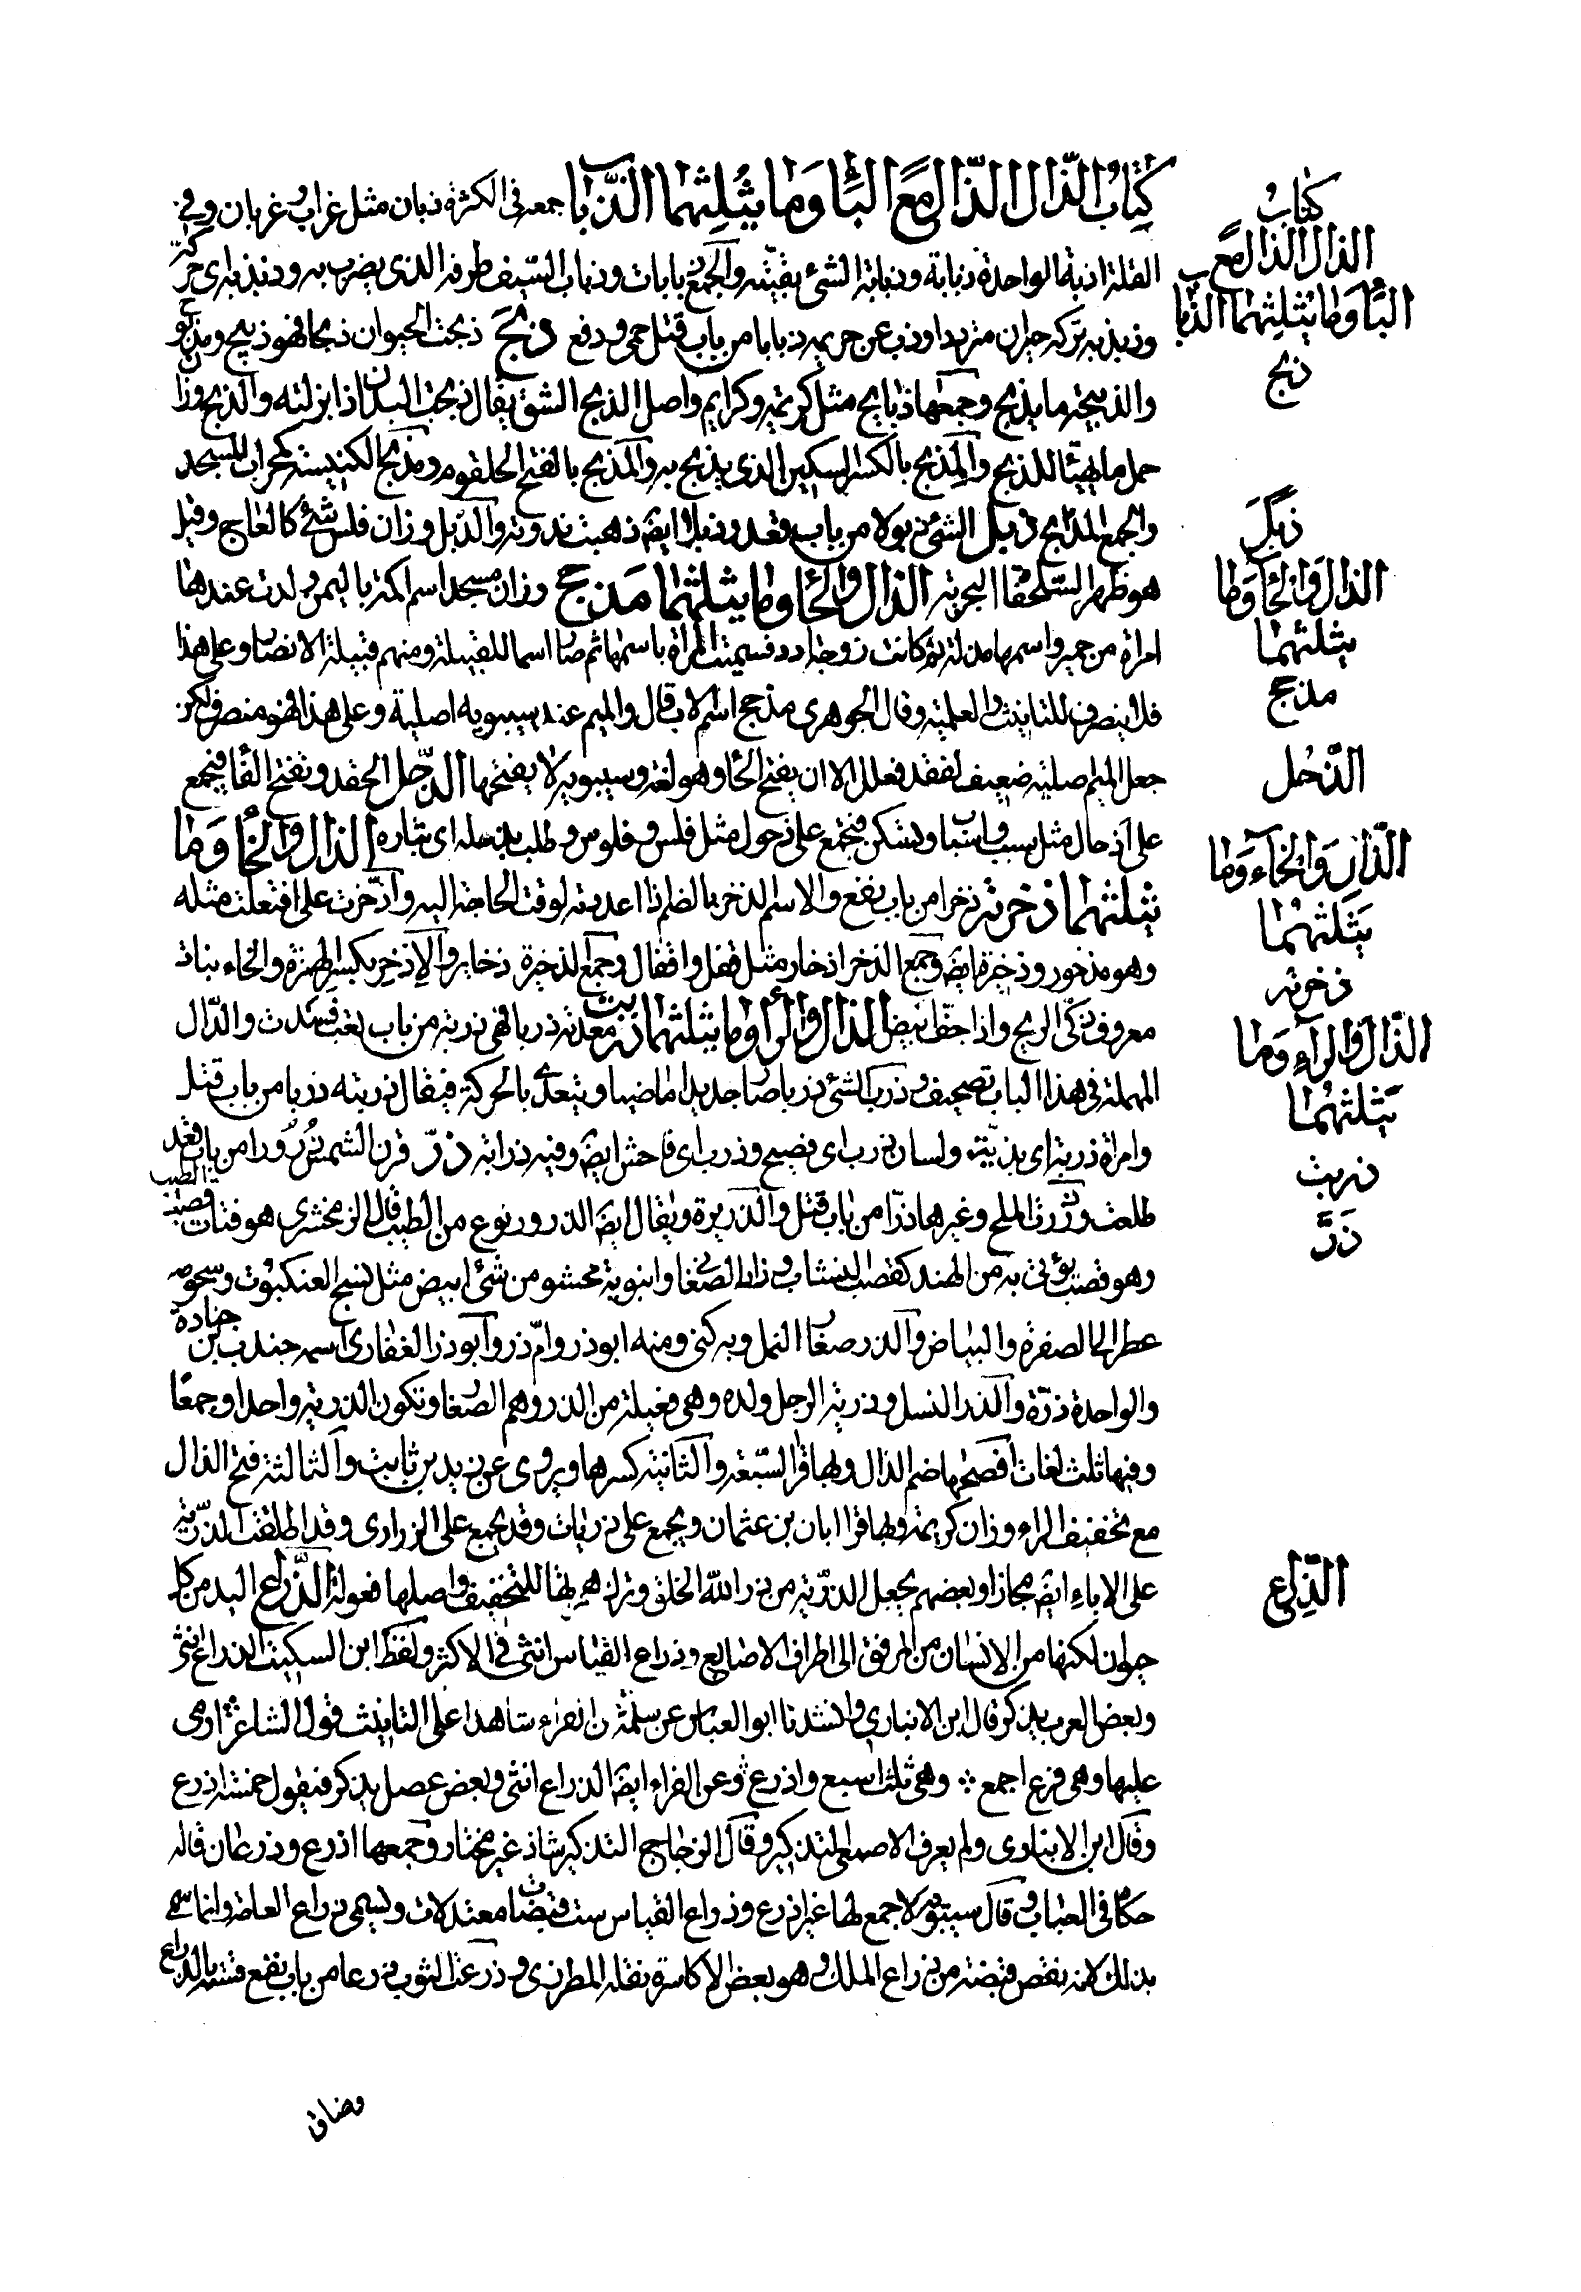 كتاب الذال الذال مع الباء وما يثلثهما الذباب جمعه في الكثرة ذبان مثل غراب وغربان وفي
القلة اذبة الواحدة ذبابة وذبابة الشئ بقيته والجمع ذبابات وذباب السيف طرفه الذي يضرب به وذبذبه اي حركه
وذبذبه تركه حيران مترددا وذب عن حريمه ذبا من باب قتل حمى ودفع ذبح ذبحت الحيوان ذبحا فهو ذبيح ومذبوح
والذبيحة ما يذبح وجمعها ذبايح مثل كريمة وكرايم واصل الذبح الشق يقال ذبحت الدن اذا بزلته والذبح وزان
حمل ما يهيئا للذبح والمذبح بالكسر السكين الذي يذبح به والمذبح بالفتح الحلقوم ومذبح الكنيسة كمحراب المسجد
والجمع المذابح ذبل الشئ ذبولا من باب قعد وذبلا ايضا ذهبت ندوته والذبل وزان فلس شئ كالعاج وقيل
هو ظهر السلحفاة البحرية الذال والحاء وما يثلثهما مذحج وزان مسجد اسم اكمة باليمن ولدت عندها
امراة من حمير واسمها مدلة ثم كانت زوجة ادد فسميت المراة باسمها ثم صار اسما للقبيلة ومنهم قبيلة الانصار وعلى هذا
فلا ينصرف للتانيث والعلمية وقال الجوهري مذحج اسم لاب قال والميم عند سيبويه اصلية وعلى هذا فهو منصرف لكن
جعل الميم اصلية ضعيف لفقد فعلل الا ان يفتح الحاء وهو لغة وسيبويه لا يفتحها الذحل الحقد وتفتح الحاء فيجمع
على اذحال مثل سبب واسباب وتسكن فيجمع على ذحول مثل فلس وفلوس وطلب بذحله اي بثاره الذال والخاء وما
يثلثهما ذخرته ذخرا من باب نفع والاسم الذخر بالضم اذا اعددته لوقت الحاجة اليه وادخرت على افتعلت مثله
وهو مذخور وذخيرة ايضا وجمع الذخر اذخار مثل قفل واقفال وجمع الذخيرة ذخاير والاذخر بكسر الهمزة والخاء نبات
معروف ذكي الريح واذا جف ابيض الذال والراء وما يثلثهما ذربت معدته ذربا فهي ذربة من باب تعب فسدت والدال
المهملة في هذا الباب تصحيف وذرب الشئ ذربا صار حديدا ماضيا ويتعدى بالحركة فيقال ذربته ذربا من باب قتل
وامراة ذربة اي بذيئة ولسان ذرب اي فصيح وذرب اي فاحش ايضا وفيه ذرابة ذر قرن الشمس ذرورا من باب قعد
طلعت وذررت الملح وغيرها ذرا من باب قتل والذريرة ويقال ايضا الذرور نوع من الطيب قال الزمخشري هو فتات قصب الطيب
وهو قصب يؤتى به من الهند كقصب النشاب وزاد الصغاني وانبوبه محشو من شئ ابيض مثل نسج العنكبوت ومسحوقه
عطر الى الصفرة والبياض والذر صغار النمل وبه كني ومنه ابو ذر وام ذر وابو ذر الغفاري اسمه جندب بن جنادة
والواحدة ذرة والذر النسل وذرية الرجل ولده وهي فعيلة من الذر وهم الصغار وتكون الذرية واحدا وجمعا
وفيها ثلث لغات افصحها ضم الذال وبها قرا السبعة والثانية كسرها ويروى عن زيد بن ثابت والثالثة فتح الذال
مع تخفيف الراء وزان كريمة وبها قرا ابان بن عثمان ويجمع على ذريات وقد يجمع على الذراري وقد اطلقت الذرية
على الاباء ايضا مجازا وبعضهم يجعل الذرية من ذرا الله الخلق وترك همزها للتخفيف واصلها فعولة الذراع اليد من كل
حيوان لكنها من الانسان من المرفق الى اطراف الاصابع وذراع القياس انثى في الاكثر ولفظ ابن السكيت الذراع انثى
وبعض العرب يذكر قال ابن الانباري وانشدنا ابو العباس عن سلمة عن الفراء شاهدا على التانيث قول الشاعر ارمي
عليها وهي فرع اجمع وهي ثلث اسبع واذرع وعن الفراء ايضا الذراع انثى وبعض عصل يذكر فيقول خمسة اذرع
وقال ابن الانباري ولم يعرف الاصمعي التذكير وقال الزجاج التذكير شاذ غير مختار وجمعها اذرع وذرعان قاله
حكاه في العباب وقال سيبويه لا جمع لها غير اذرع وذراع القياس ست قبضات معتدلات ويسمى ذراع العامة وانما سمي
بذلك لانه نقص قبضة من ذراع الملك وهو بعض الاكاسرة نقله المطرزي وذرعت الثوب ذرعا من باب نفع قسته بالذراع
وضاق
كتاب
الذال الذال مع
الباء وما يثلثهما الذباب
ذبح
ذبل
الذال والحاء وما
يثلثهما
مذحج
الذحل
الذال والخاء وما
يثلثهما
ذخرته
الذال والراء وما
يثلثهما
ذربت
ذر
الذراع